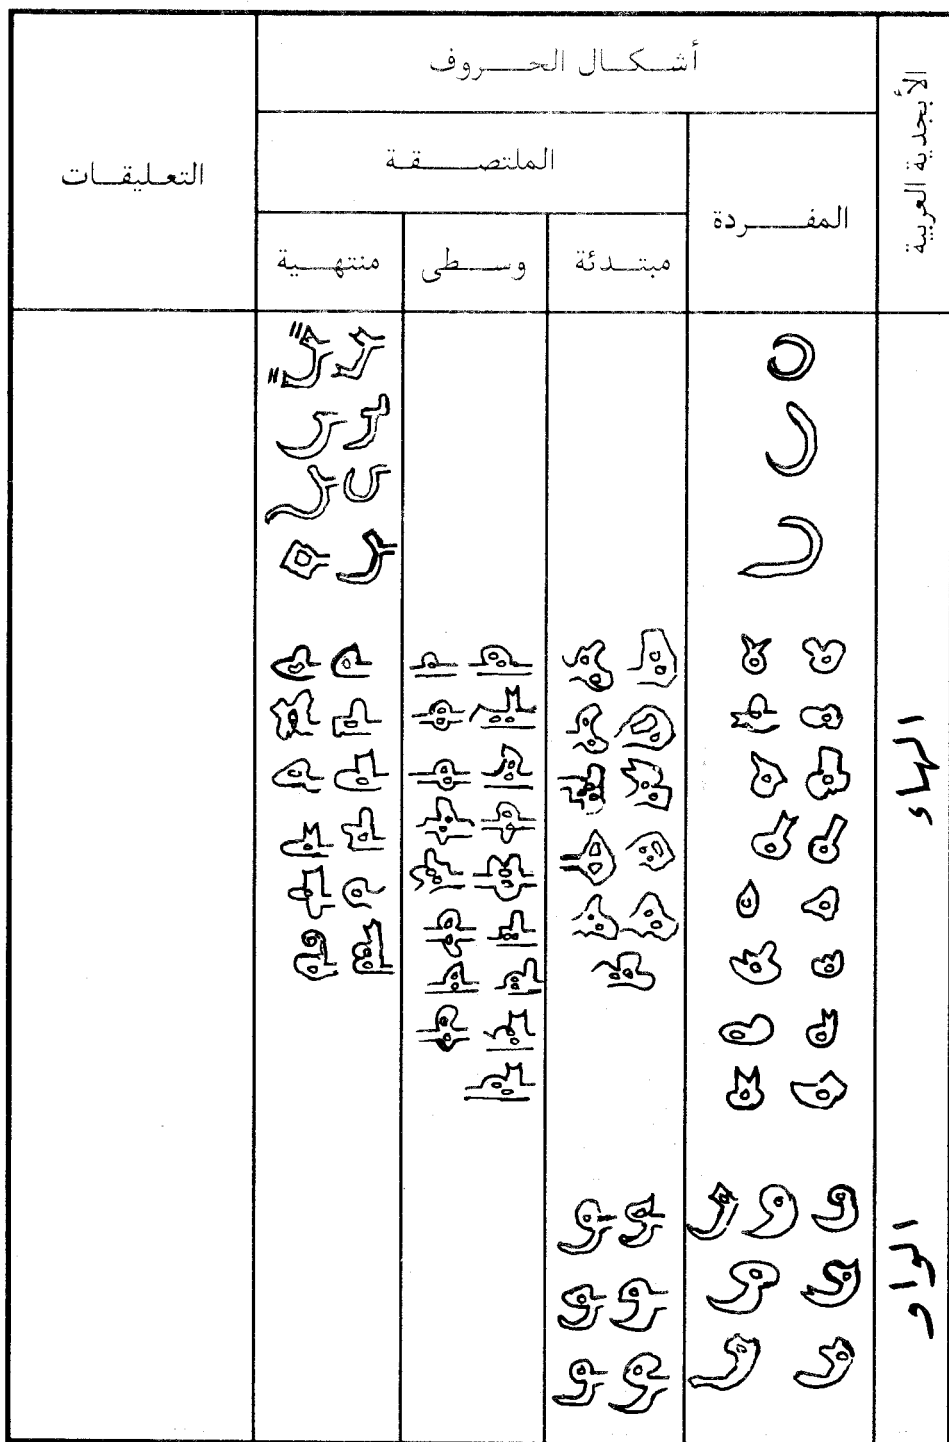 الأبجدية العربية
أشكال الحروف
المفردة
الملتصقة
مبتدئة
وسطى
منتهية
التعليقات
الهاء
الواو